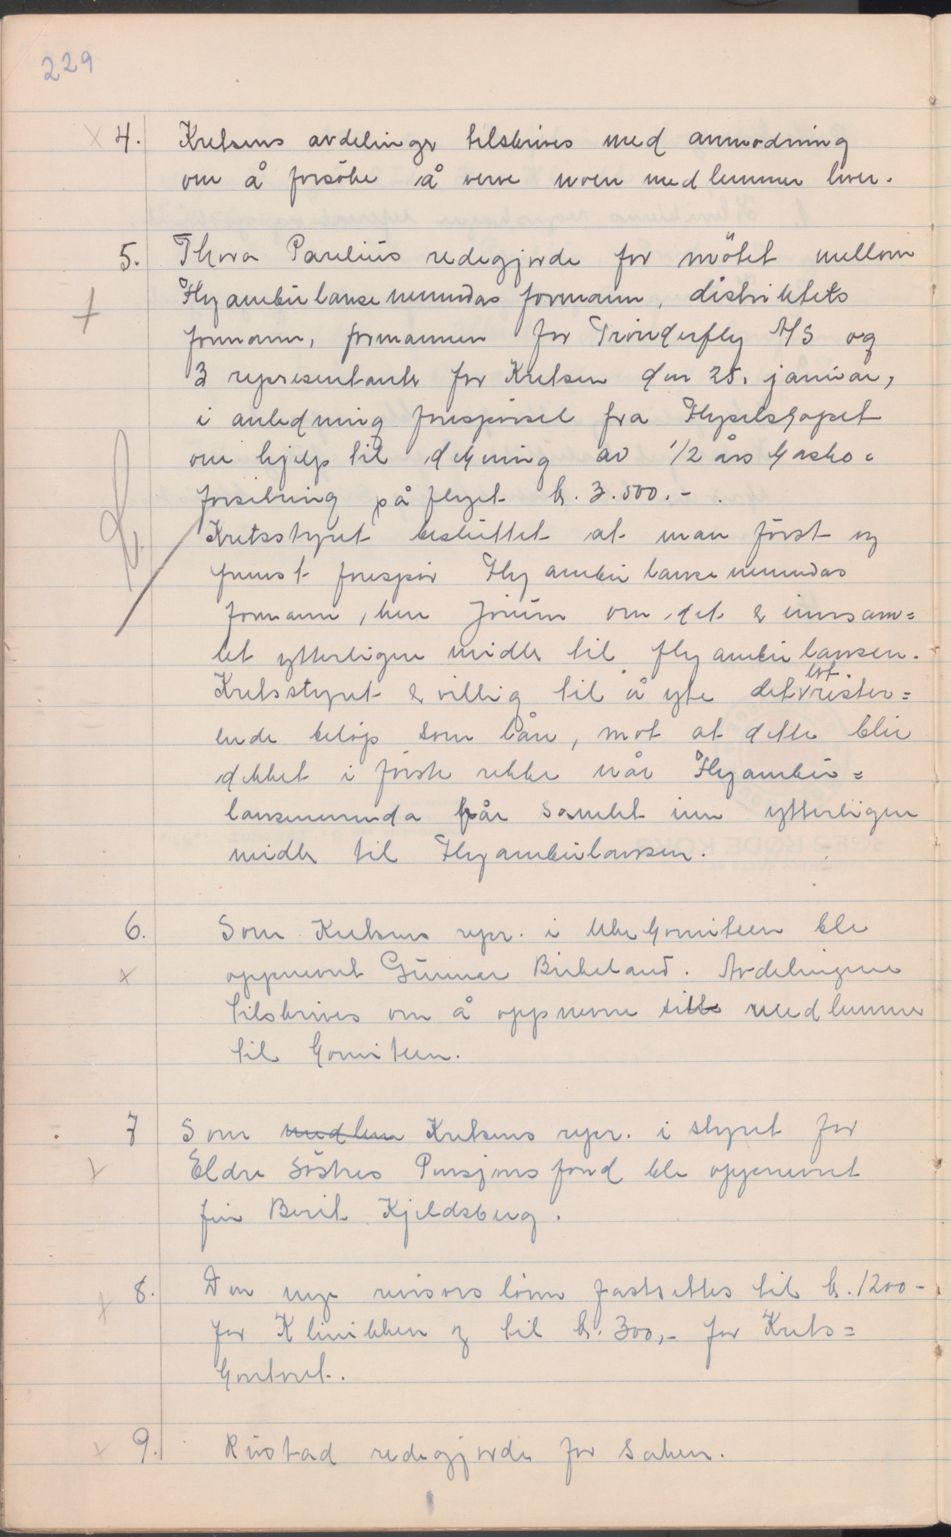 229
4. Kretsens avdelinger tilskrives med anmodning
om å forsöke å verve noen medlemmer hver.
5. Thora Paulius redegjorde for mötet mellom
Flyambulansenemndas formann, distriktets
formann, formannen for Trönderfly A/S og
3 representanter for Kretsen den 25. januar,
i anledning forespörsel fra Flyselskapet
om hjelp til dekning av 1/2 års kasko=
forsikring på flyet kr. 3.500.-.
Kretsstyret besluttet at man först og
fremst forespör Flyambulansenemndas
formann, herr Jörum om det er innsam=
let ytterligere midler til flyambulansen.
Kretsstyret er villig til å yte det rester=
ende belöp som lån, mot at dette blir
dekket i förste rekke når Flyambu=
lansenemnda får samlet inn ytterligere
midler til Flyambulansen.
6. Som Kretsens repr. i Uke komiteen ble
oppnevnt Gunnar Birkeland. Avdelingene
tilskrives om å oppnevne medlemmer
til komiteen.
7 Som medlem Kretsens repr. i styret for
Eldre Söstres Pensjonsfond ble oppnevnt
fru Berit Kjeldsberg.
8. Den nye revisors lönn fastsettes til kr. 1200-
for Klinikken og til kr. 300,- for Krets=
kontoret.
9. Rustad redegjorde for saken.